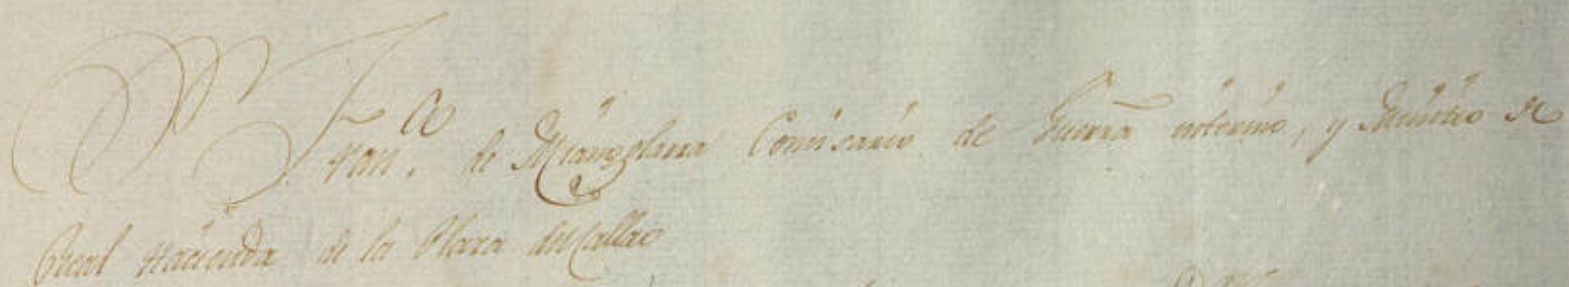 Fran.co de Mangolarra Comisario de Guerra interino, y Ministro de
Real Hacienda de la Plaza del Callao